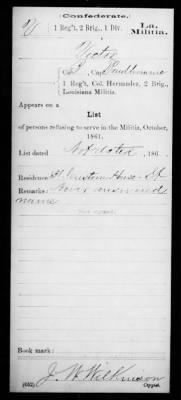 Confederate.
V 1 Reg't, 2 Brig., 1 Div. La. Militia.
Victor
Co. B, Capt.
1 Reg't, Col. Hermader, 2 Brig.,
Louisiana Militia.
Appears on a
List
of persons refusing to serve in the Militia, October,
1861.
List dated Not dated, 186 .
Residence Customhouse St
Remarks: Never answered
name
Book mark:
(652) J. W. Wilkinson
Copyist.